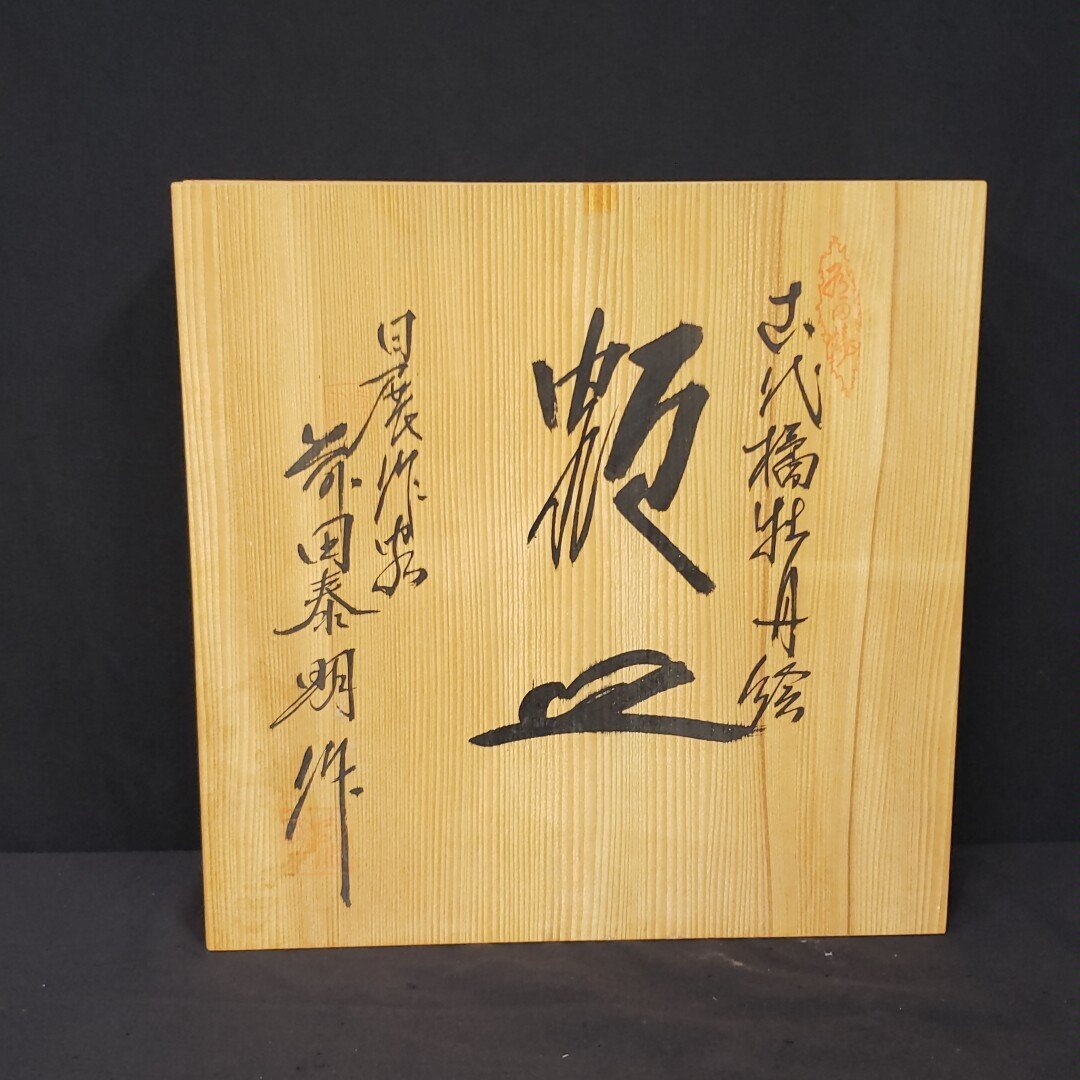 古代橘牡丹絵
額皿
日展作家
前田泰明作